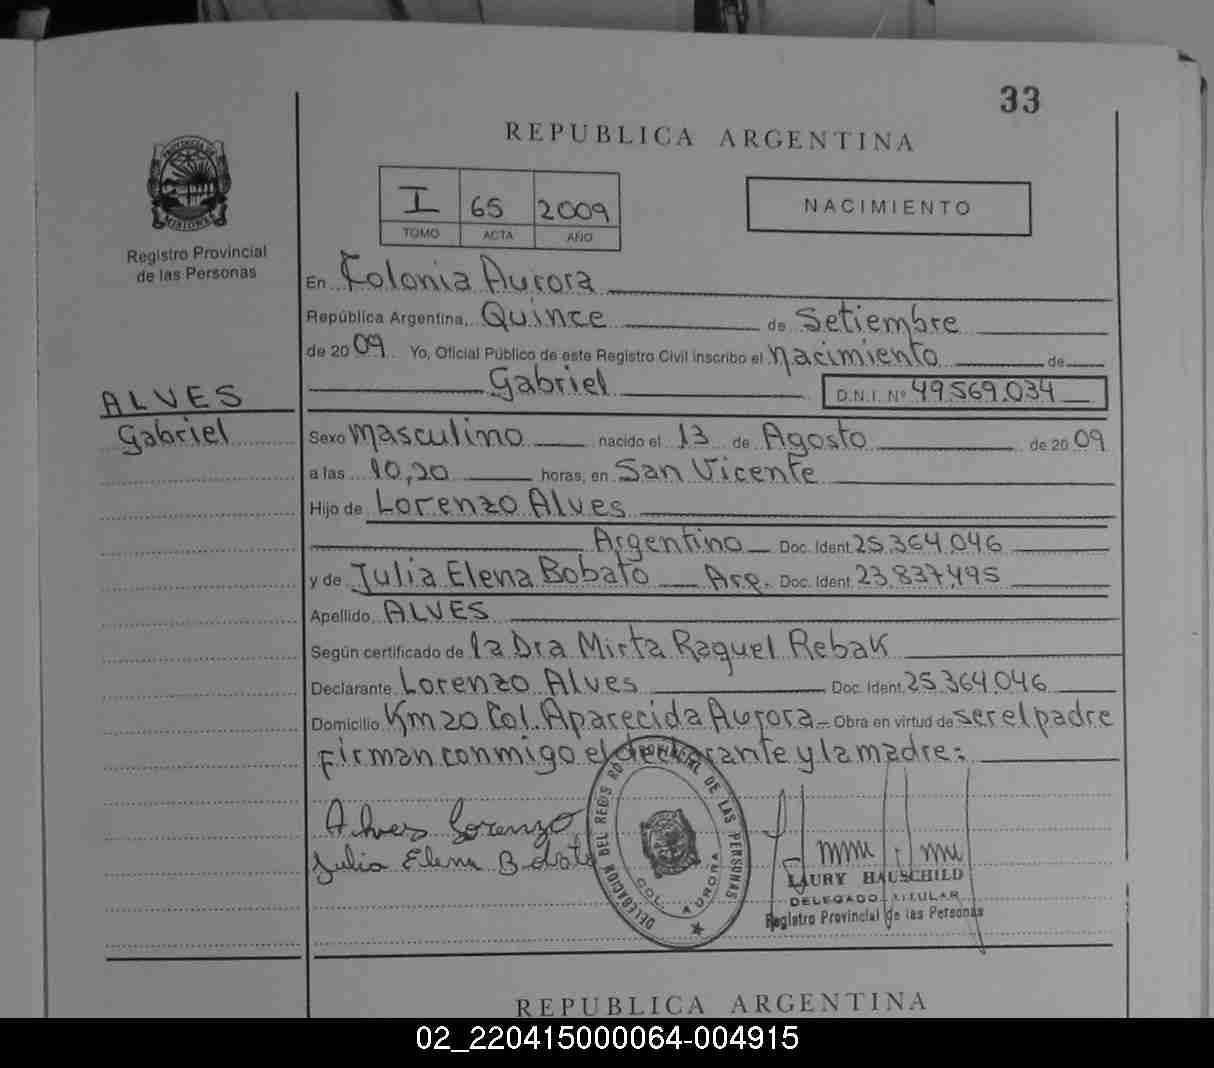 33
REPUBLICA ARGENTINA
PROVINCIA DE MISIONES
Registro Provincial
de las Personas
I 65 2009
TOMO ACTA AÑO
NACIMIENTO
En Colonia Aurora
República Argentina, Quince de Setiembre
de 2009 Yo, Oficial Público de este Registro Civil inscribo el nacimiento de
Gabriel D.N.I. Nº 49.569.034
ALVES
Gabriel
Sexo masculino nacido el 13 de Agosto de 2009
a las 10,20 horas, en San Vicente
Hijo de Lorenzo Alves
Argentino Doc. Ident. 25.364.046
y de Julia Elena Bobato Arg. Doc. Ident. 23.837.495
Apellido ALVES
Según certificado de la Dra Mirta Raquel Rebak
Declarante Lorenzo Alves Doc. Ident. 25.364.046
Domicilio Km 20 Col. Aparecida Aurora - Obra en virtud de ser el padre
firman conmigo el declarante y la madre:
Alves Lorenzo
Julia Elena Bobato
DELEGACION DEL REGISTRO PROVINCIAL DE LAS PERSONAS
COL. AURORA
LAURY HAUSCHILD
DELEGADO TITULAR
Registro Provincial de las Personas
REPUBLICA ARGENTINA
02_220415000064-004915